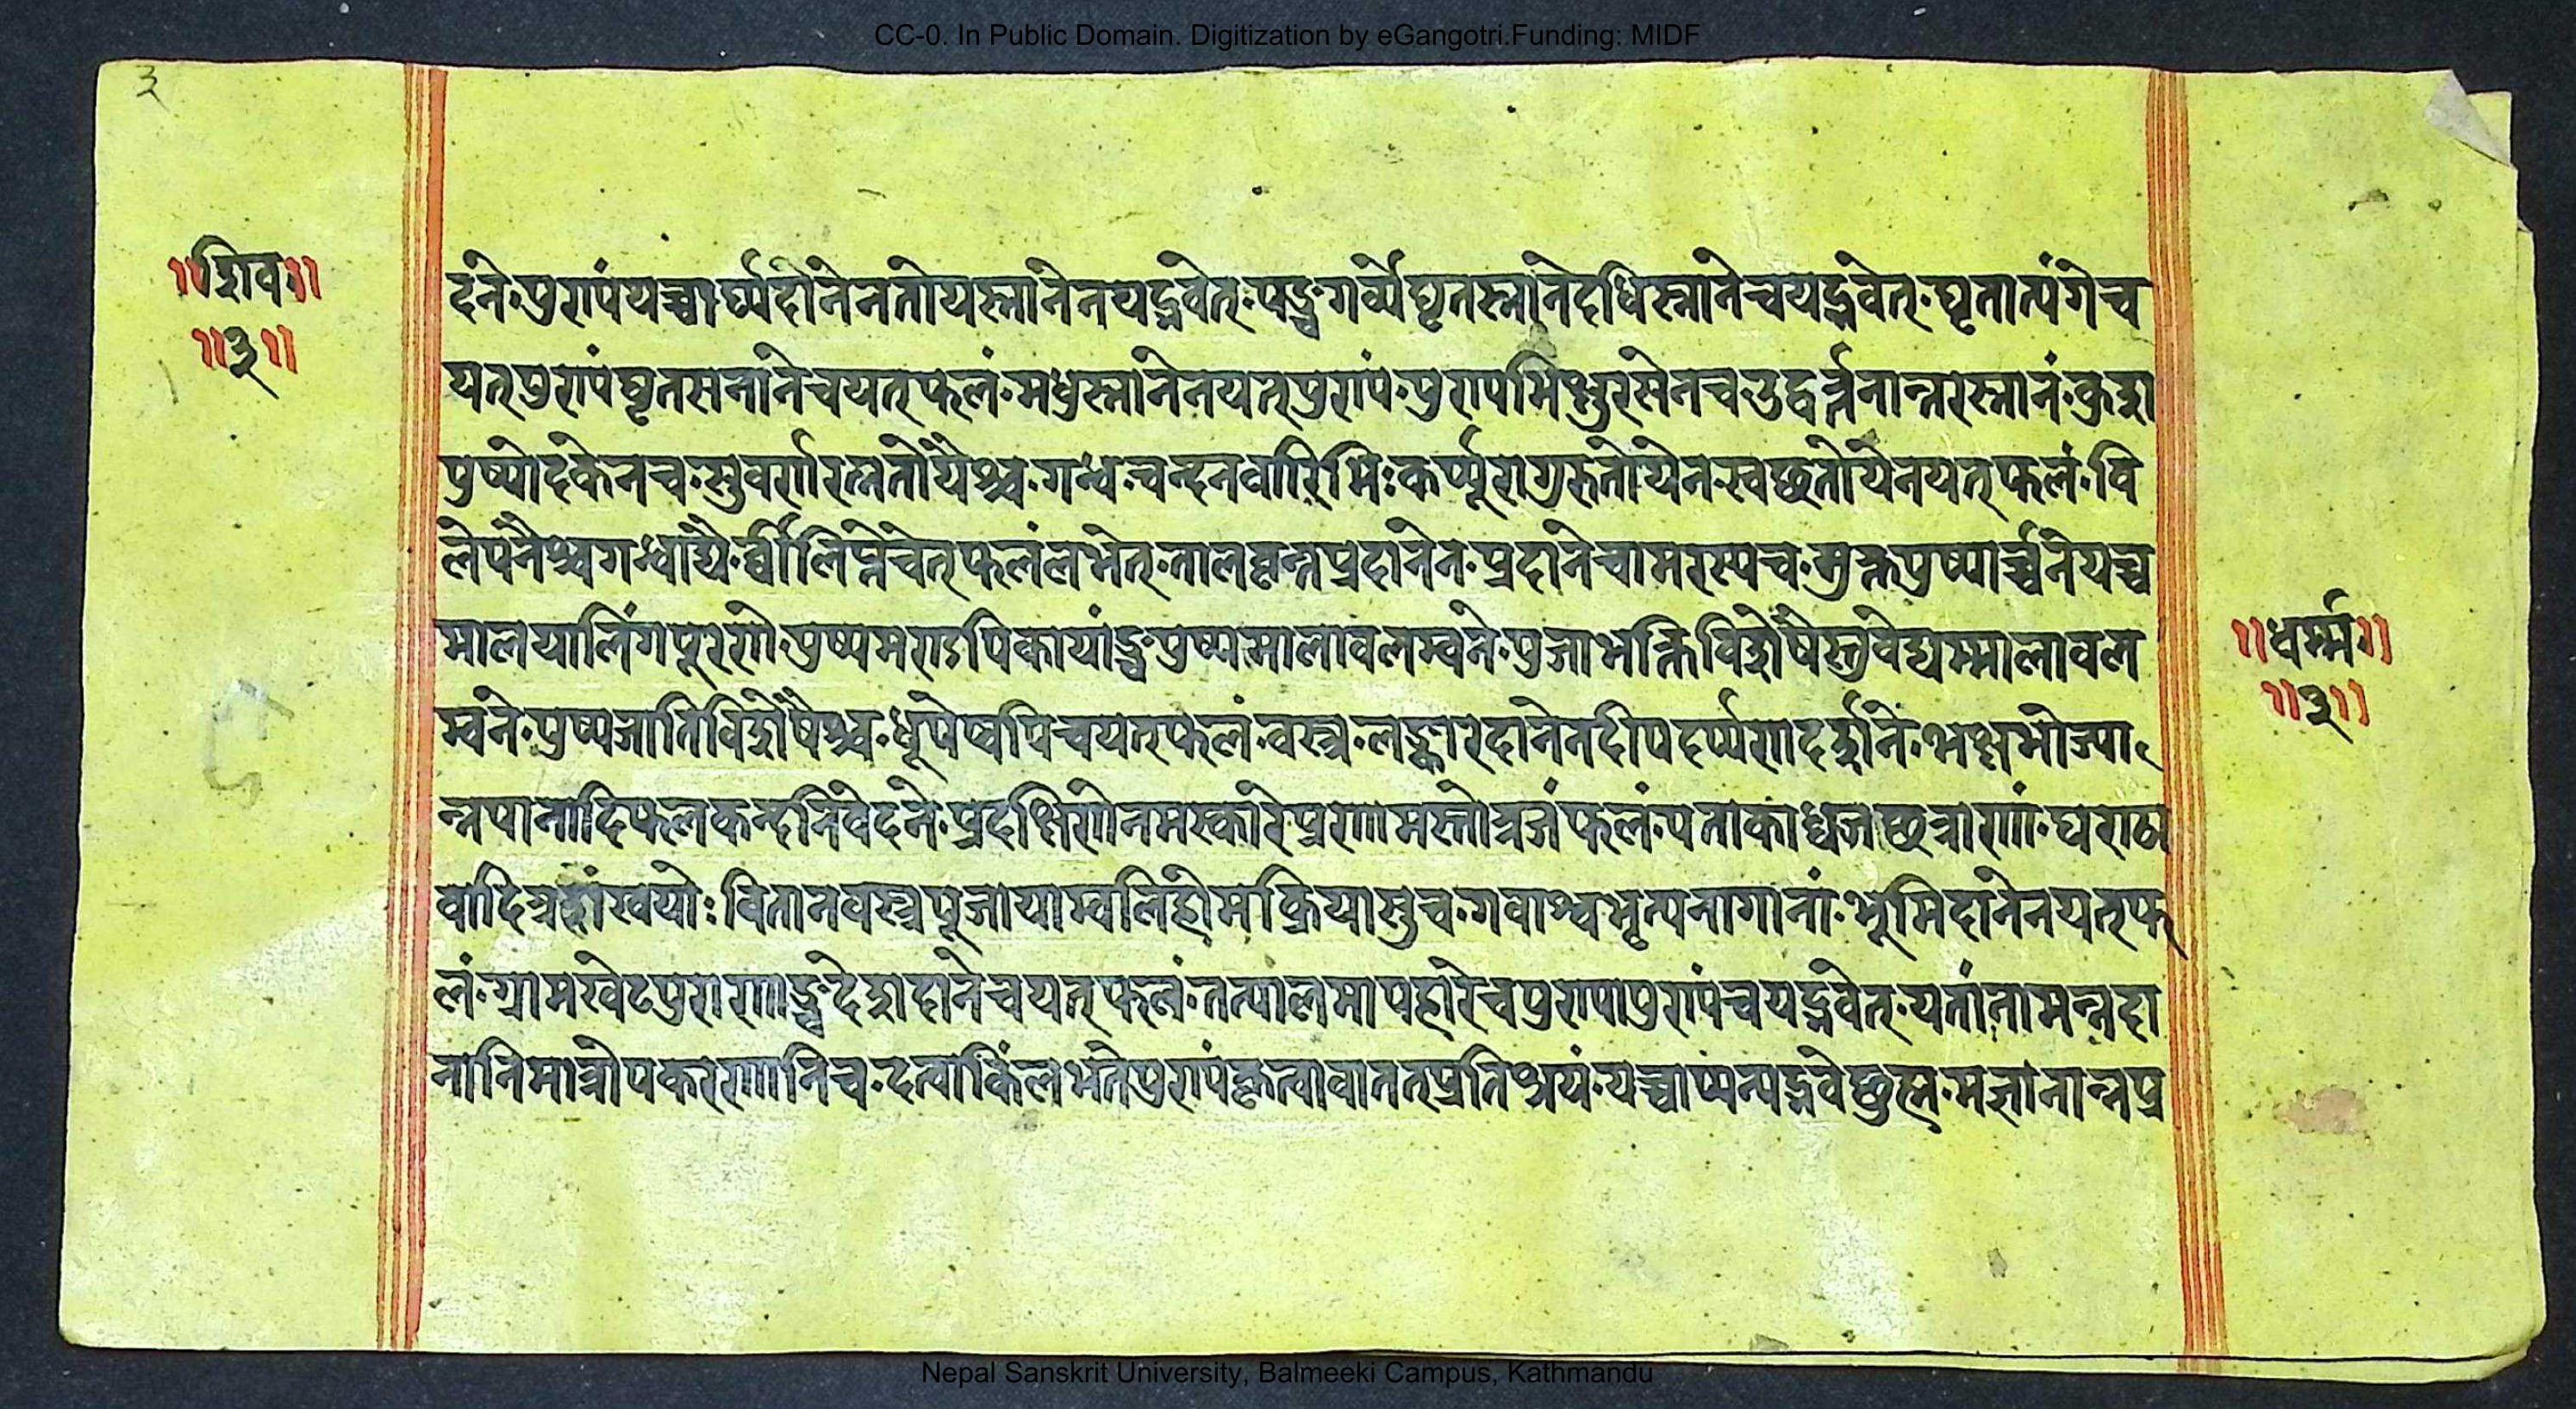 CC-0. In Public Domain. Digitization by eGangotri.Funding: MIDF
३
॥शिव॥
॥३॥
दने·पुण्यंयच्चार्घ्यदानेनतोयस्नानेनयद्भवेत्·पञ्चगव्येघृतस्नानेदधिस्नानेचयद्भवेत्·घृताभ्यंगेच
यत्पुण्यंघृतसनानेचयत्फलं·मधुस्नानेनयत्पुण्यं·पुण्यमिक्षुरसेनचउद्वर्त्तनान्नरस्नानं·कुश
पुष्पोदकेनच·सुवर्णरत्नतोयैश्च·गन्धचन्दनवारिभिःकर्प्पूरागुरुतोयेनस्वछतोयेनयत्फलं·वि
लेपनैश्चगन्धाद्यै·र्व्वीलिप्तेचेत्फलंलभेत्·तालवृन्तप्रदानेन·प्रदानेचामरस्यच·मुक्तपुष्पार्च्चनेयच्च
मालयालिंगपूरणेपुष्पमण्डपिकायांञ्चपुष्पमालावलम्बने·पुजाभक्तिविशेषैस्तुवेद्यम्मालावल
म्बने·पुष्पजातिविशेषैश्च·धूपेष्वपिचयत्फलं·वस्त्र·लङ्कारदानेनदीपदर्प्पणदर्शने·भक्षभोज्या
न्नपानादिफलकन्दनिवेदने·प्रदक्षिणेनमस्कारेप्रणामस्तोत्रजंफलं·पताकाध्वजछत्राणां·घण्ठा
वादित्रशंखयोःवितानवस्त्रपूजायाम्बलिहोमक्रियासुच·गवाश्वभृत्यनागानां·भूमिदानेनयत्फ
लं·ग्रामखेटपुराणाञ्चदेशदानेचयत्फलं·तत्पालमापहारेचपुण्यापुण्यंचयद्भवेत्·यतीनामन्नदा
नानिमात्रोपकरणानिच·दत्वाकिंलभतेपुण्यंकृत्वावाततप्रतिश्रयं·यच्चाप्यन्यद्भवेछुत्म·मज्ञानान्नप्र
॥धर्म्म॥
॥३॥
Nepal Sanskrit University, Balmeeki Campus, Kathmandu